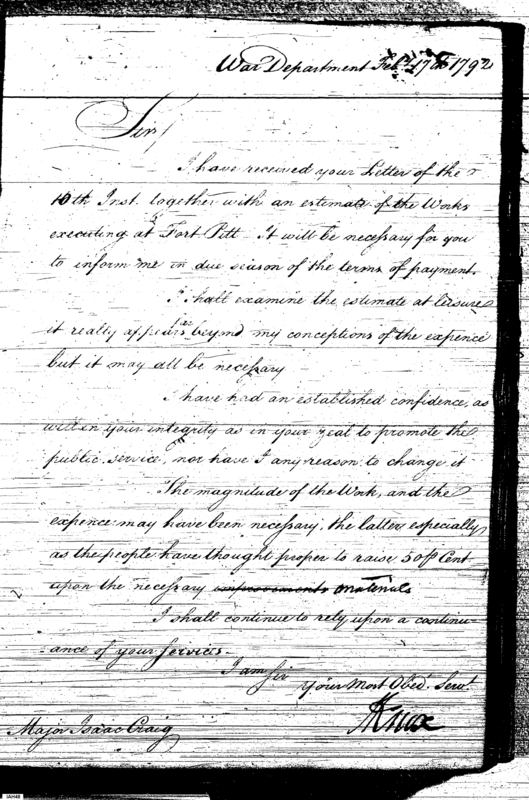 War Department Feb 1792
Sir!
I have received your Letter of the
10th Inst. together with an estimate of the Works
executing at Fort Pitt - It will be necessary for you
to inform me in due season of the terms of payment.
I shall examine the estimate at leisure
it really appears beyond my conceptions of the expence
but it may all be necessary
I have had an established confidence, as
well in your integrity as in your zeal to promote the
public service, nor have I any reason to change it
The magnitude of the Work, and the
expence may have been necessary, the latter especially
as the people have thought proper to raise 50 P Cent
upon the necessary improvements materials
I shall continue to rely upon a continu-
-ance of your services.
I am Sir
Your Most Obed. Servt.
HKnox
Major Isaac Craig